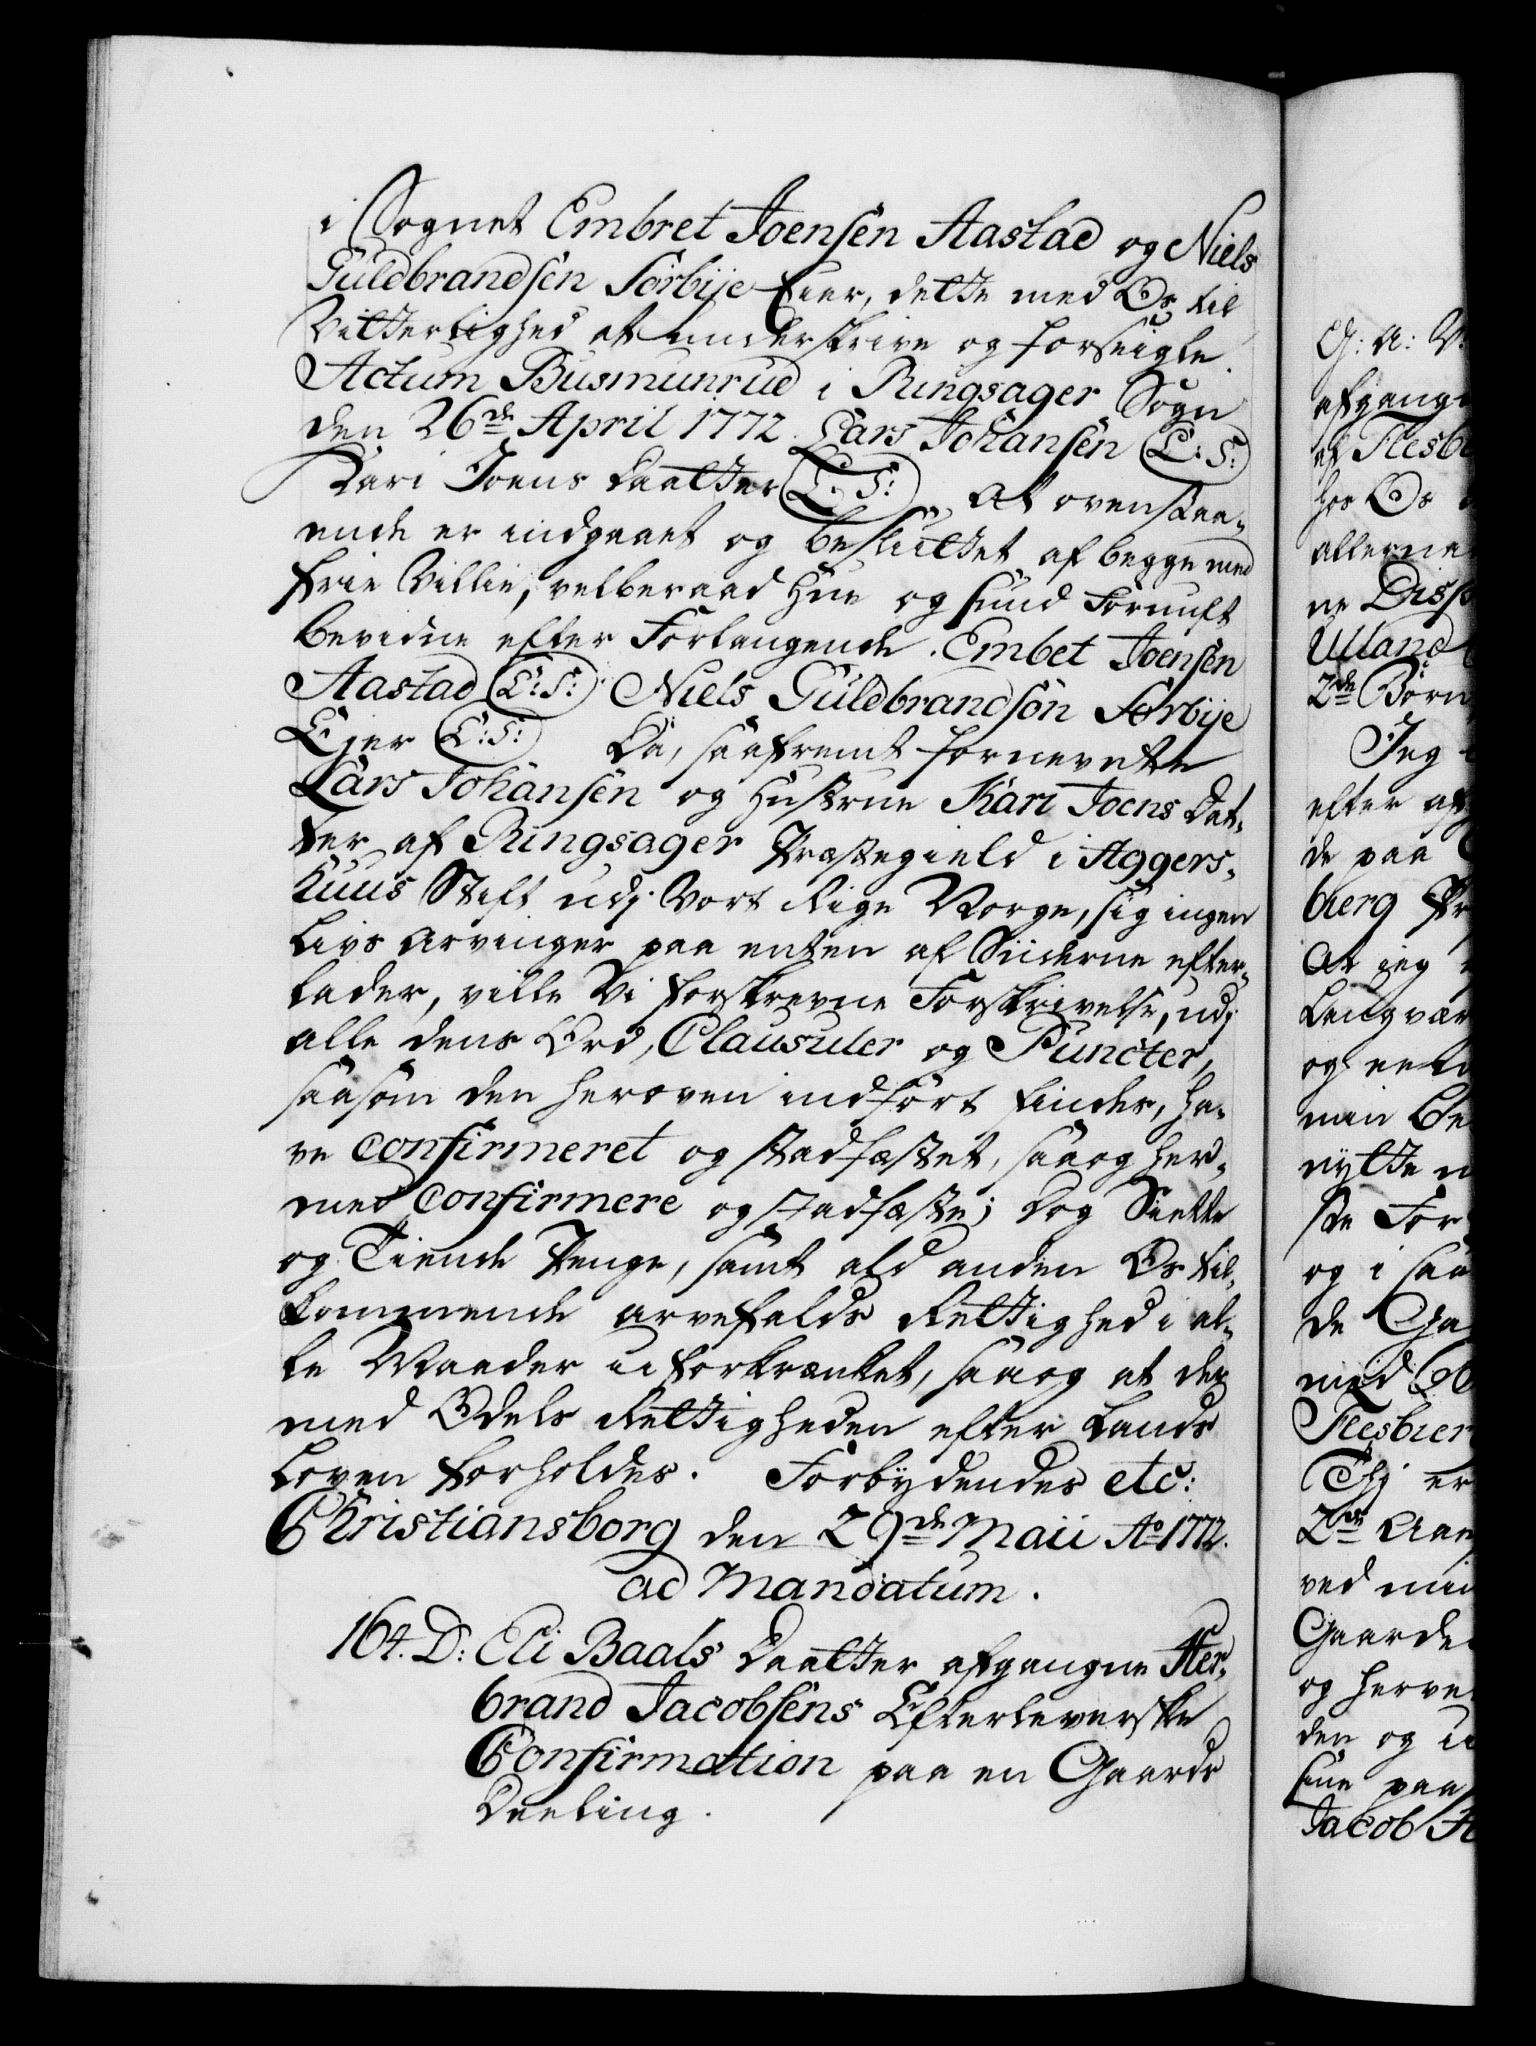 i Sognet Embret Joensen Aastad og Niels
Guldbrandsen Sørbije Eier, dette med Os til
Vitterlighed at underskrive og forseigle.
Actum Busmunrud i Ringsager Sogn
den 26de April 1772. Lars Johansen (L: S:)
Kari Joens Daatter (L. S:) At ovenstaa-
ende er indgaaet og besluttet af begge med
frie Villie, velberaad Hue og sund Fornuft
bevidne efter Forlangende. Embet Joensen
Aastad (L: S:) Niels Guldbrandsøn Sørbije
Ejer (L: S:) Da, saafremt fornevnte
Lars Johansen og Hustrue Kari Joens Dat-
ter af Ringsager Præstegield i Aggers-
huus Stift udj Vort Rige Norge, sig ingen
Livs Arvinger paa enten af Siiderne efter-
lader, ville Vi forskrevne Forskrivelse, udj
alle dens Ord, Clausuler og Puncter,
saasom den heroven indført findes, ha-
ve confirmeret og stadfæstet, saa og her-
med confirmere og stadfæste; Dog Siette
og Tiende Penge, samt ald anden Os til-
kommende Arvefalds Rettighed i al-
le Maader uforkrænket, saa og at der
med Odels Rettigheden efter Lands
Loven forholdes. Forbydendes etc:
Christiansborg den 29de Maii Ao 1772.
ad Mandatum.
164. D: Eli Baals Daatter afgangne Her-
brand Jacobsens Efterleverske
Confirmation paa en Gaards
Deeling.
G: A: V.
afgangn
af Flesb
hos Os
allerna
ne Disp
Ulland
2de Børn
Jeg
efter af
de paa
bierg Pr
At jeg
Langvær
og
min
nytte
ste For
og i saa
de Ga
med
Flesbier
Thj er
ved min
Gaarde
og herve
den og
paa
Jacob